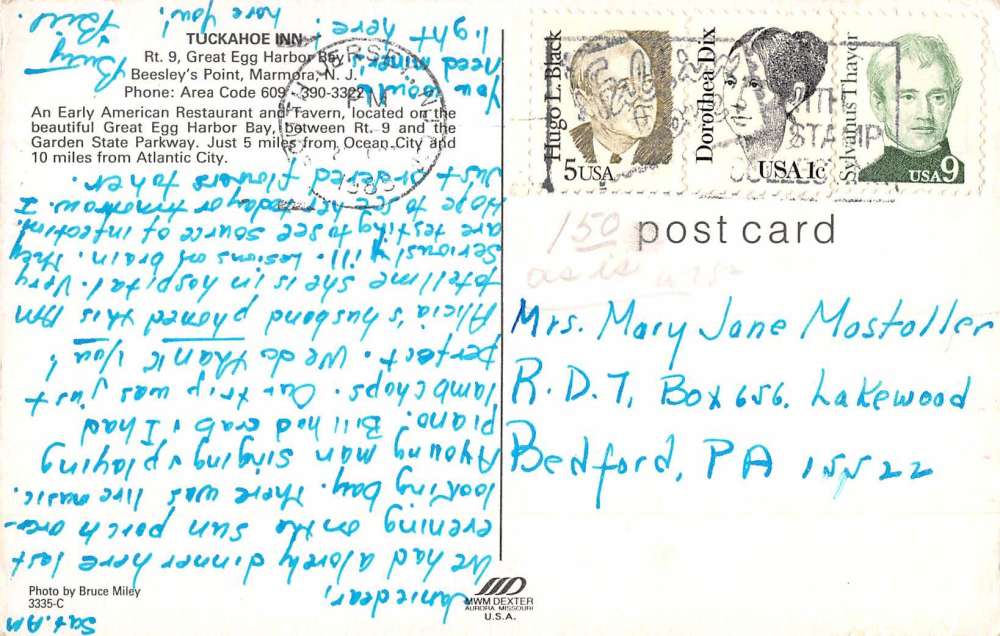 TUCKAHOE INN
Rt. 9, Great Egg Harbor Bay
Beesley's Point, Marmora, N. J.
Phone: Area Code 609 - 390-3322
An Early American Restaurant and Tavern, located on the
beautiful Great Egg Harbor Bay, between Rt. 9 and the
Garden State Parkway. Just 5 miles from Ocean City and
10 miles from Atlantic City.
Sat. AM
Janie dear,
We had a lovely dinner here last
evening on the sun porch over-
looking bay. There was live music.
A young man singing & playing
piano. Bill had crab & I had
lamb chops. Our trip was just
perfect. We do thank you!
Alicia's husband phoned this AM
to tell me she is in hospital. Very
seriously ill. Lesions on brain. They
are testing to see source of infection.
Hope to see her today or tomorrow. I
just ordered flowers to her.
You would
need miner's
light here!
Love you!
Bill
Photo by Bruce Miley
3335-C
MWM DEXTER
AURORA, MISSOURI
U.S.A.
Hugo L. Black
5 USA
Dorothea Dix
USA 1c
Sylvanus Thayer
USA 9
PM
1989
WITH
STAMP
150
as is
post card
Mrs. Mary Jane Mostoller
R.D.7, Box 656, Lakewood
Bedford, PA 15522